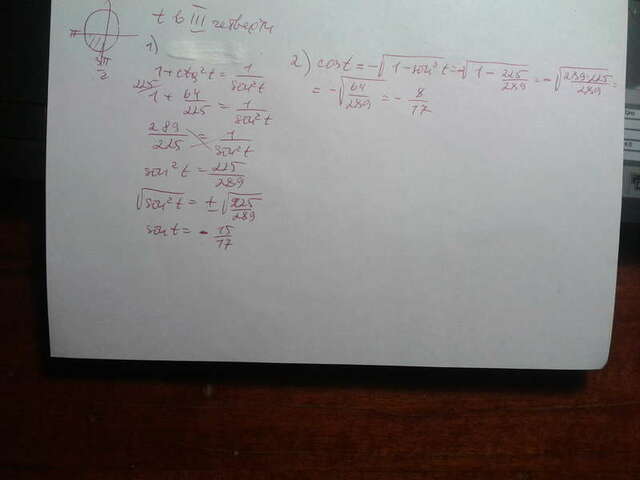 t в III четверти
π
3π/2
1)
1 + ctg²t = 1/sin²t
225/ 1 + 64/225 = 1/sin²t
289/225 = 1/sin²t
sin²t = 225/289
√sin²t = ± √225/289
sin t = - 15/17
2) cos t = -√1 - sin²t = -√1 - 225/289 = -√289-225/289 =
= -√64/289 = - 8/17